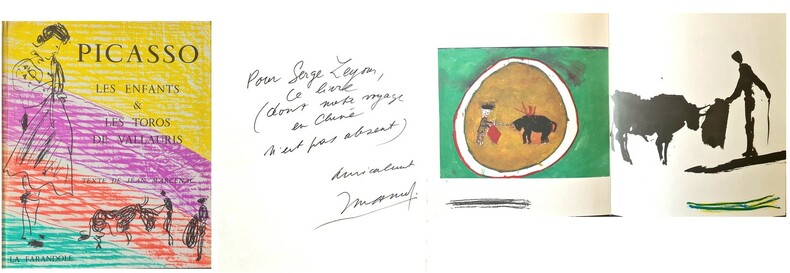 PICASSO
LES ENFANTS
&
LES TOROS
DE VALLAURIS
TEXTE DE JEAN MARCENAC
LA FARANDOLE
Pour Serge
ce livre
(dont notre voyage
en Chine
n'est pas absent)
amicalement